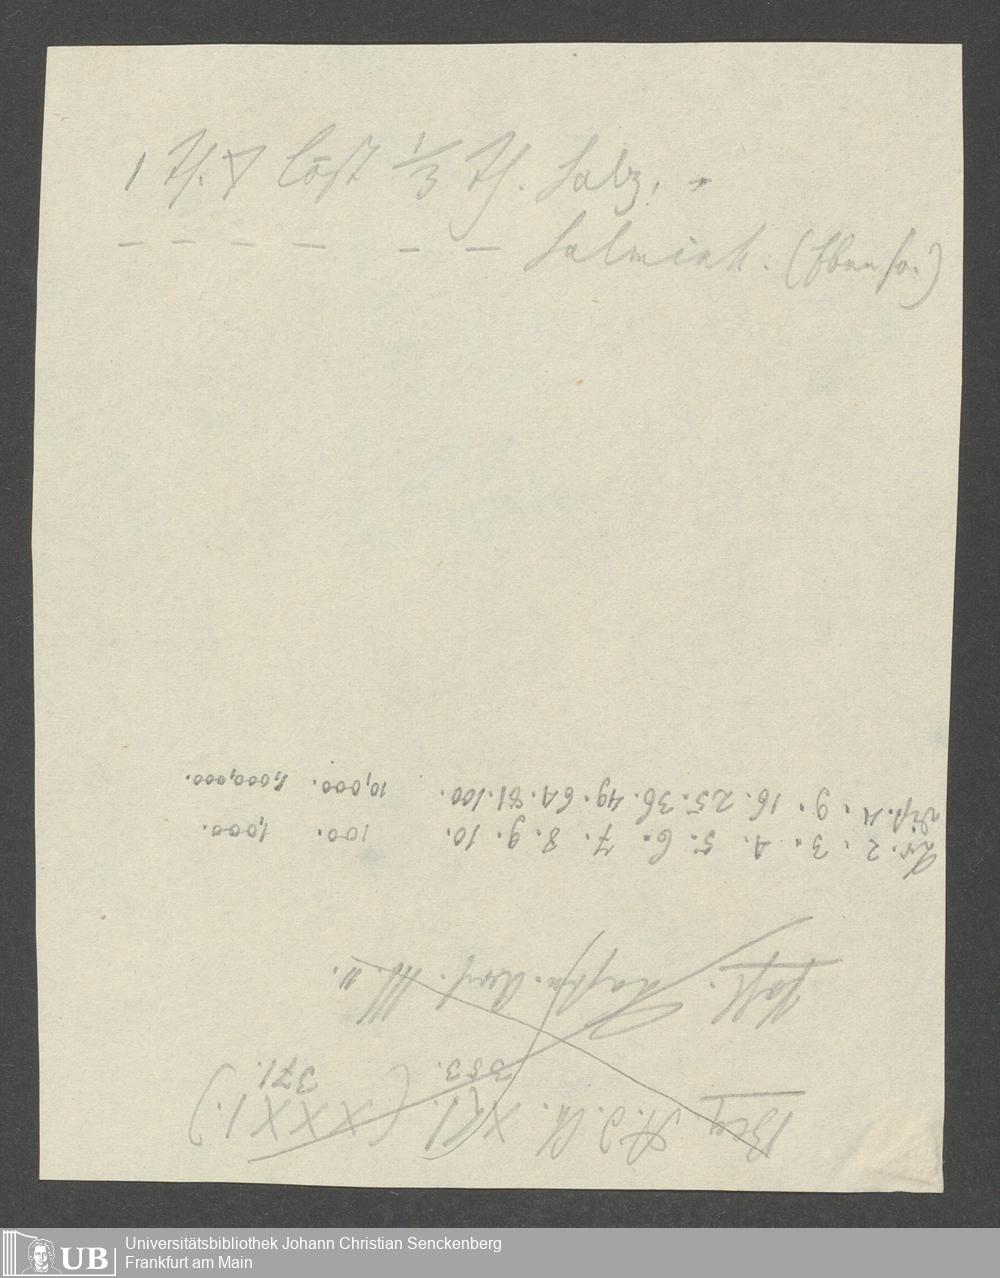 1 Th. 🜄 löst 1/3 Th. Salz. -
– – – – – – Salmiak. (Ebenso.)
A. d. Ch. XVI. (XXXI.)
353. 371.
III. u.
2. 3. 4. 5. 6. 7. 8. 9. 10. 100. 1,000.
4. 9. 16. 25. 36. 49. 64. 81. 100. 10,000. 1,000,000.
UB
Universitätsbibliothek Johann Christian Senckenberg
Frankfurt am Main